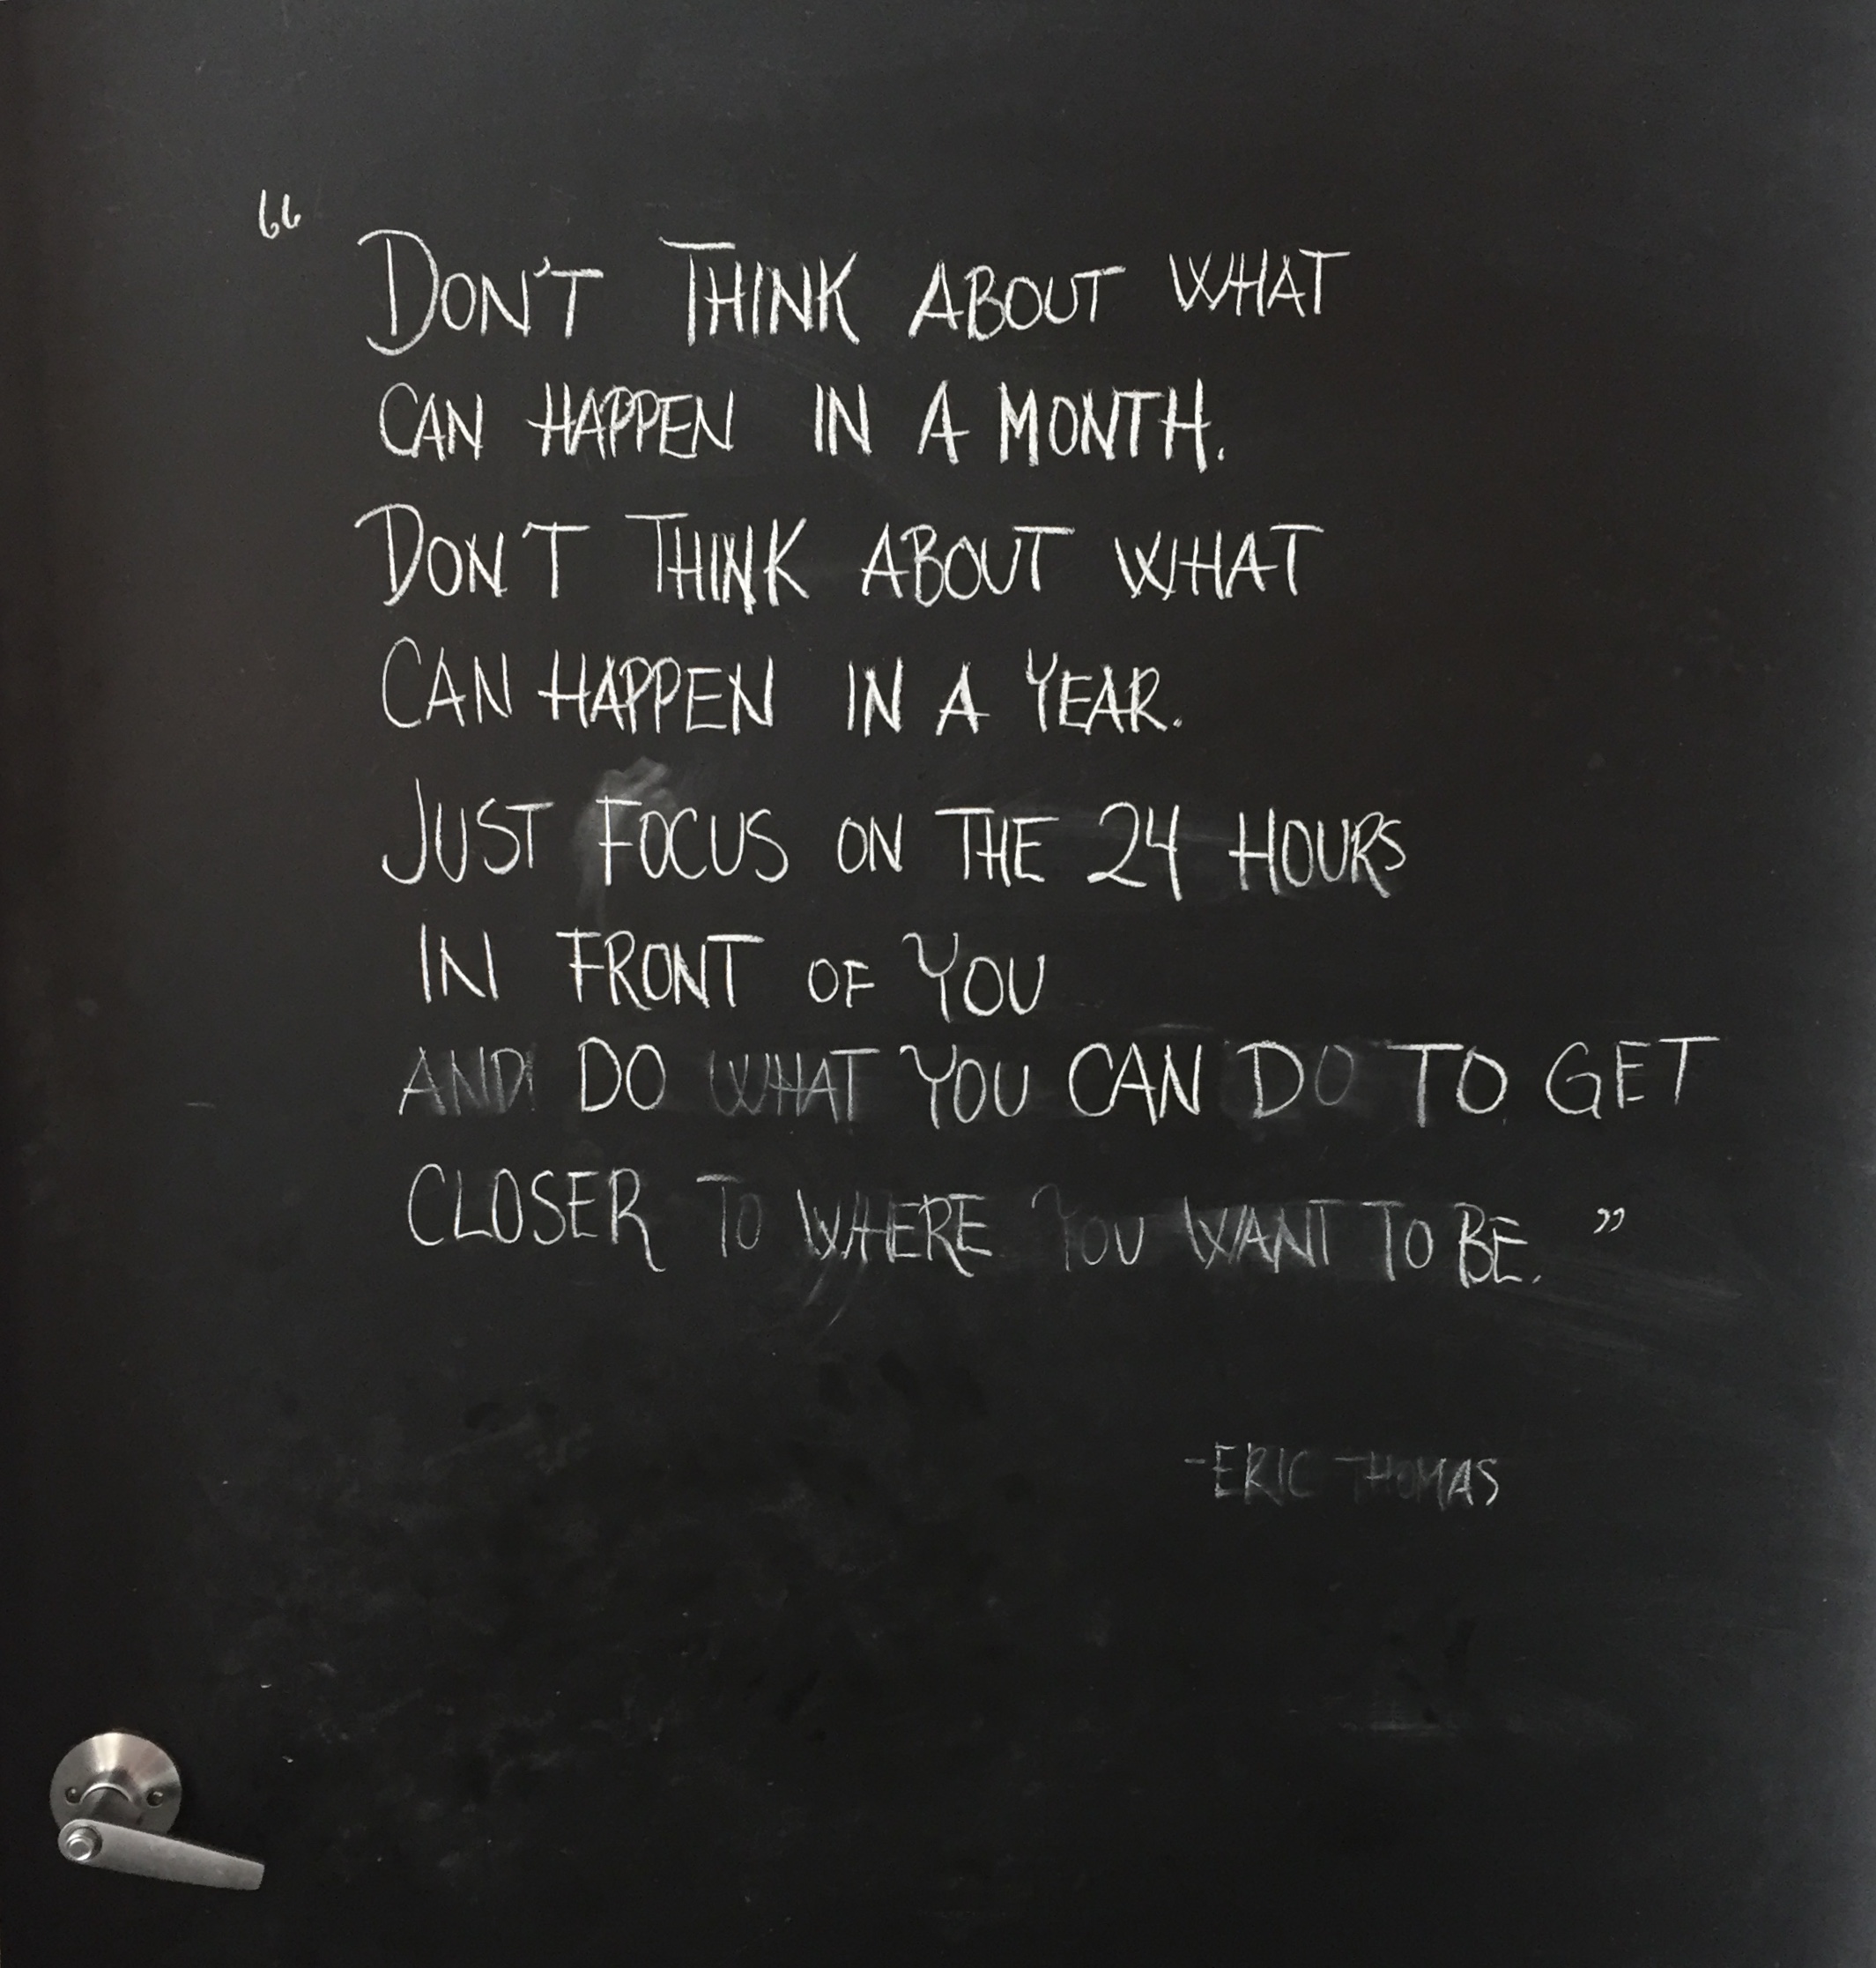 “ DON'T THINK ABOUT WHAT
CAN HAPPEN IN A MONTH.
DON'T THINK ABOUT WHAT
CAN HAPPEN IN A YEAR.
JUST FOCUS ON THE 24 HOURS
IN FRONT OF YOU
AND DO WHAT YOU CAN DO TO GET
CLOSER TO WHERE YOU WANT TO BE. ”
-ERIC THOMAS